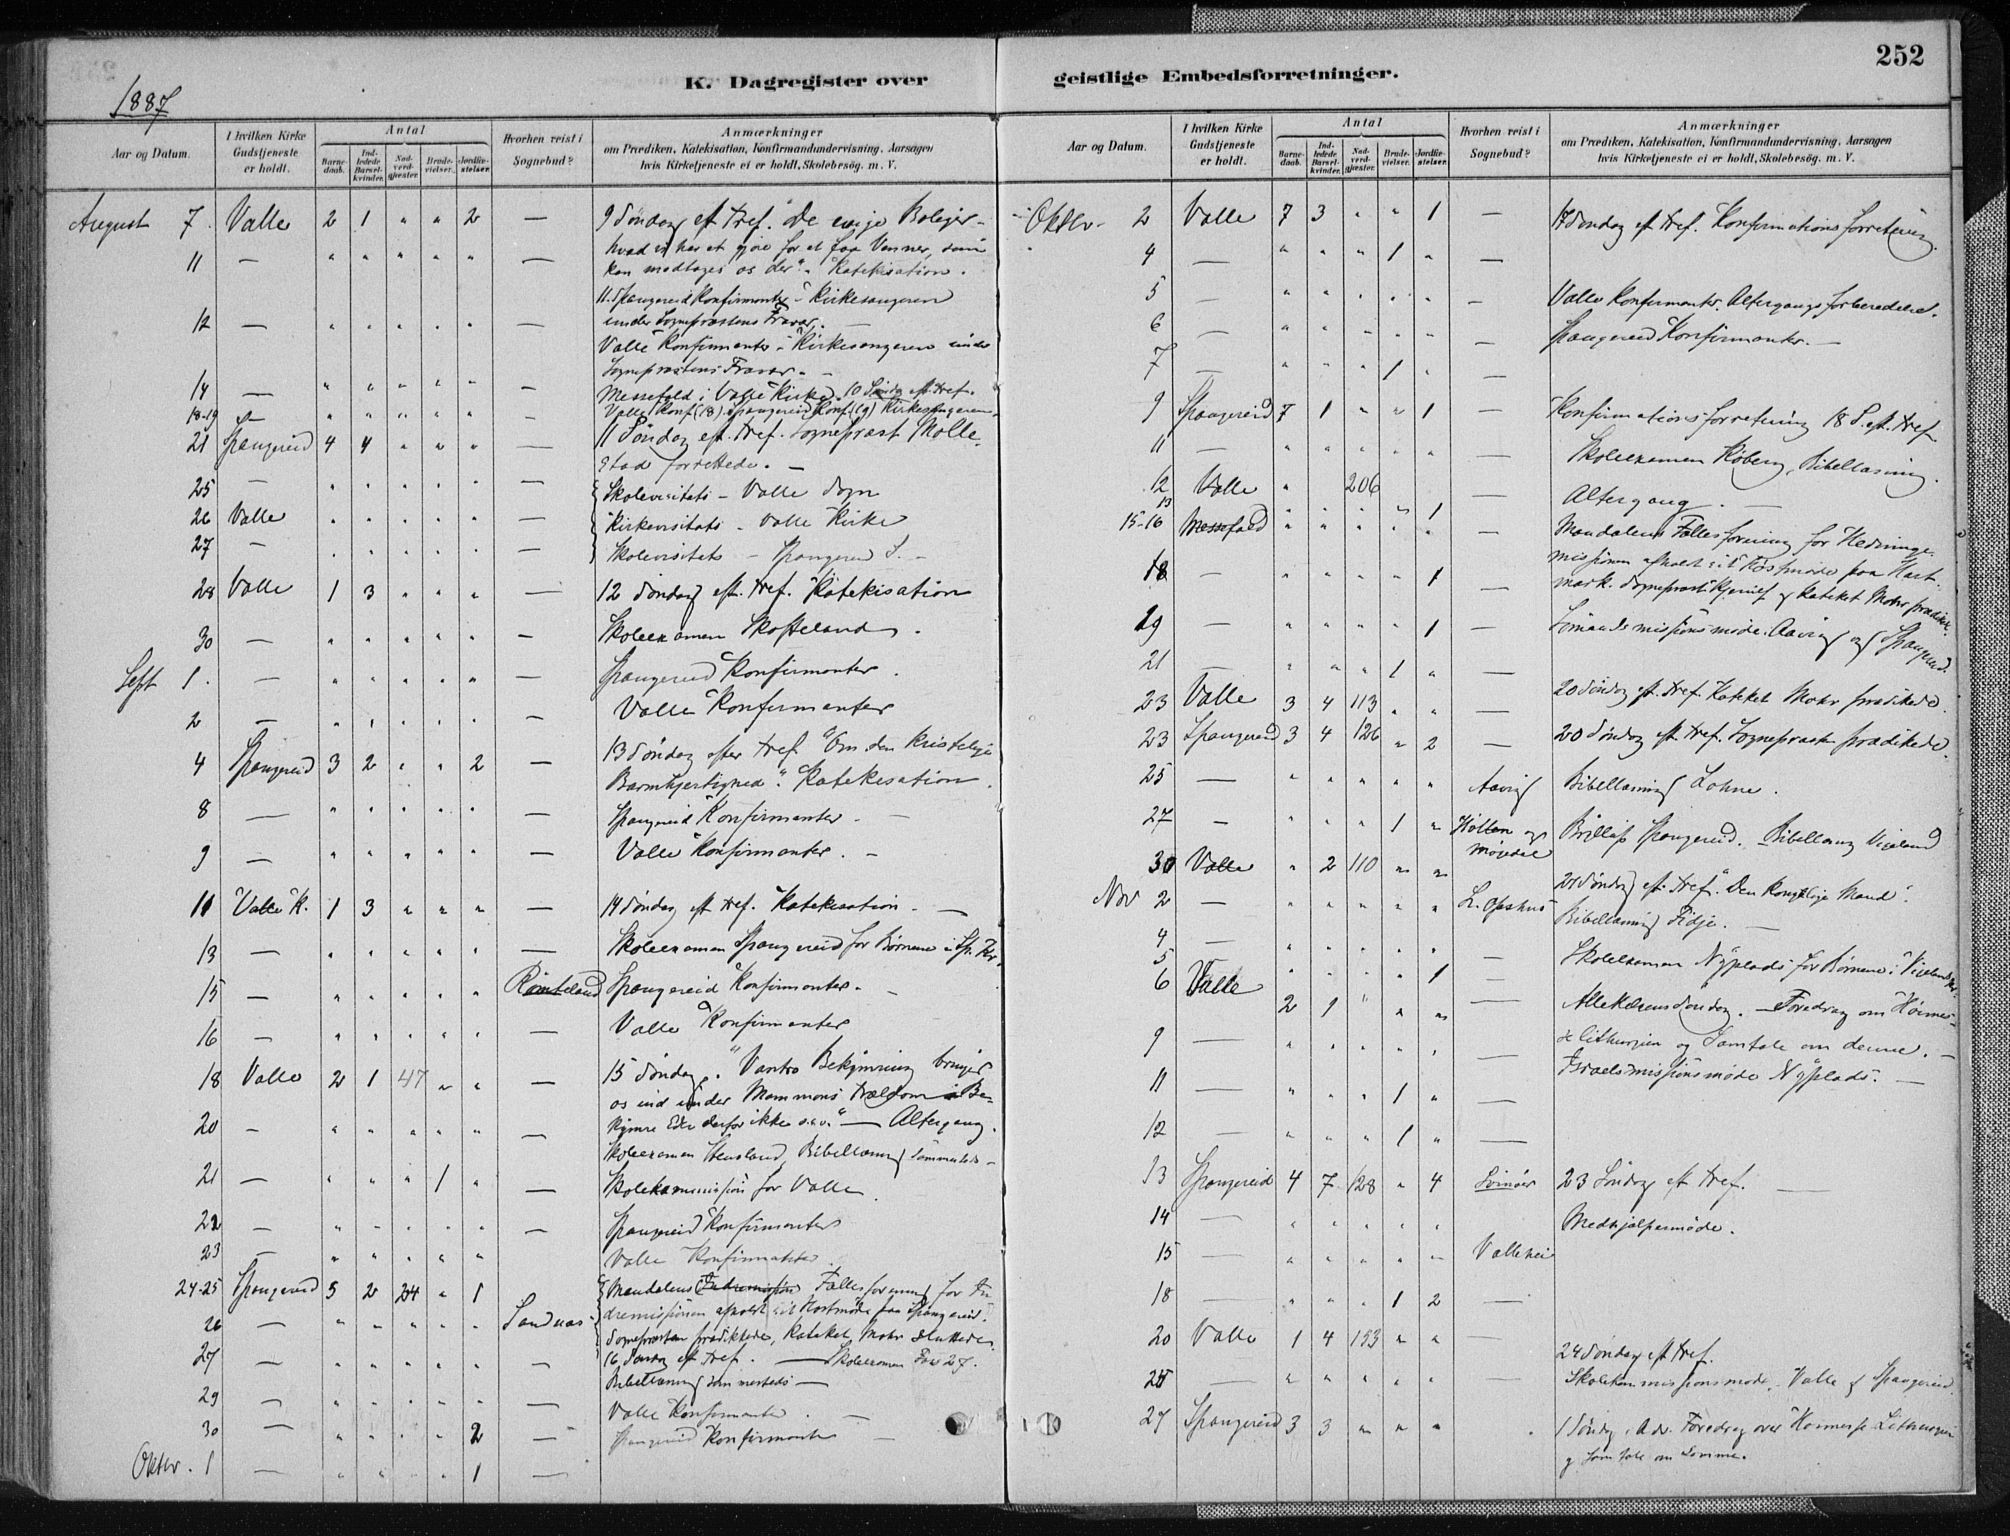 252
K. Dagregister over geistlige Embedsforretninger.
1887
Aar og Datum. | I hvilken Kirke Gudstjeneste er holdt. | Antal | Barnedaab. | Indledede Barselkvinder. | Nadverdgjæster. | Brudevielser. | Jordfæstelser. | Hvorhen reist i Sognebud? | Anmærkninger om Prædiken, Katekisation, Konfirmandundervisning, Aarsagen hvis Kirketjeneste ei er holdt, Skolebesög. m. V.
August 7. Valle 2 1 " " 2 — 9 Søndag eft. Tref. "De evige Boliger –
hvad vi har at gjøre for at faa Venner, som
kan modtages os der". Katekisation.
11 — " " " " " — 11. Spangereid Konfirmanter – Kirkesangeren
under Sognepræstens Fravær. —
12 — " " " " " — Valle Konfirmanter – Kirkesangeren under
Sognepræstens Fravær. –
14 — " " " " " — Messefald i Valle Kirke. 10 Søndag eft. Tref.
18-19 — " " " " " — Valle Konf. (18). Spangereid Konf. (19) Kirkesangeren.
21 Spangereid 4 4 " " " — 11 Søndag eft. Tref. Sognepræst Molle-
stad forrettede. —
25 — " " " " " — Skolevisitats – Valle Sogn
26 Valle " " " " " — Kirkevisitats – Valle Kirke
27 — " " " " " — Skolevisitats – Spangereid S. –
28 Valle 1 3 " " " — 12 Søndag eft. Tref. Katekisation
30 — " " " " " — Skoleexamen Skofteland.
Sept 1. — " " " " " — Spangereid Konfirmanter.
2 — " " " " " — Valle Konfirmanter
4 Spangereid 3 2 " " 2 — 13 Søndag efter Tref. "Om den kristelige
Barmhjertighed". Katekisation.
8 — " " " " " — Spangereid Konfirmanter. –
9 — " " " " " — Valle Konfirmanter. –
11 Valle K. 1 3 " " " — 14 Søndag eft Tref. Katekisation. —
13 — " " " " " — Skoleexamen Spangereid for Børnene i Sp. Kr.
15 — " " " " " Rømteland Spangereid Konfirmanter. –
16 — " " " " " — Valle Konfirmanter
18 Valle 2 1 47 " " — 15 Søndag. "Vantro Bekymring bringer
os ind under Mammons Trældom. Be-
kymre Eder derfor ikke o.s.v." — Altergang.
20 — " " " " " — Skoleexamen Stensland, Bibellæsning sammesteds –
21 — " " " 1 " — Skolekommission for Valle.
22 — " " " " " — Spangereid Konfirmanter
23 — " " " " " Valle Konfirmanter
24-25 Spangereid 5 2 24 " 1 Mandalens Indremission Fællesforening for In-
dremissionen afholdt sit Høstmøde paa Spangereid.
26 — " " " " " Sandnæs Sognepræsten prædikede, Kateket Mohr sluttede.
27 — " " " " " — 16 Søndag eft Tref. — Skoleexamen Foss 27.
Bibellæsning sammesteds —
29 — " " " " " Valle Konfirmanter. —
30 — " " " " 2 — Spangereid Konfirmanter —
Oktbr. 1 — " " " " 1 —
Aar og Datum. | I hvilken Kirke Gudstjeneste er holdt. | Antal | Barnedaab. | Indledede Barselkvinder. | Nadverdgjæster. | Brudevielser. | Jordfæstelser. | Hvorhen reist i Sognebud? | Anmærkninger om Prædiken, Katekisation, Konfirmandundervisning, Aarsagen hvis Kirketjeneste ei er holdt, Skolebesög. m. V.
Oktbr. 2 Valle 7 3 " " 1 — 17 Søndag eft Tref. Konfirmationsforretning.
4 — " " " 1 " —
5 — " " " " " — Valle Konfirmanter. Altergangsforberedelse.
6 — " " " " " — Spangereid Konfirmanter. —
7 — " " " 1 "
9 Spangereid 7 1 " " 1 — Konfirmationsforretning 18 S. eft. Tref.
11 — " " " " " — Skoleexamen Høberg, Bibellæsning.
12 Valle " 206 — Altergang. —
13 " " " " 1
15-16 Messefald " " " " " — Mandalens Fællesforening for Hedninge-
missionen afholdt sit Høstmøde paa Hart-
mark. Sogneprest Kjerulf og Kateket Mohr prædikede.
18 — " " " " 1 —
19 — " " " " 1 — Sømandsmissionsmøde Aavig og Spangereid.
21 — " " " 1 " —
23 Valle 3 4 113 " " — 20 Søndag eft. Tref. Kateket Mohr prædikede.
23 Spangereid 3 4 126 " 2 — 20 Søndag eft Tref. Sogneprest prædikede.
25 — " " " " " Aavig Bibellæsning Lohne.
27 — " " " 1 " Holten og Bryllup Spangereid. Bibellæsning Vigeland
30 Valle " 2 110 " " 21 Søndag eft. Tref. "Den kongelige Mand".
Nov 2 — " " " " " L. Opshus Bibellæsning Fidje. —
4 — " " " " " — Skoleexamen Nyplads for Børnene i Vigelands Kr.
5 " " " " 1
6 Valle 2 1 " " " — Allehelgensøndag. – Foredrag om Høimes-
selithurgien og Samtale om denne. —
9 — " " " " " — Israelsmissionsmøde Nyplads. —
11 — " " " 1 " —
12 — " " " 1 " —
13 Spangereid 4 7 128 " 4 Svinøer 23 Søndag eft Tref. —
14 — " " " " " Medhjælpermøde.
15 — " " " " " Vallehei
18 — " " " 1 2 —
20 Valle 1 4 153 " " — 24 Søndag eft Tref.
25 — " " " " " Skolekommissionsmøde. Valle & Spangereid.
27 Spangereid 3 3 " " " 1 Søndag i Adv. Foredrag over Høimesse Lithurgien
og Samtale om Samme.